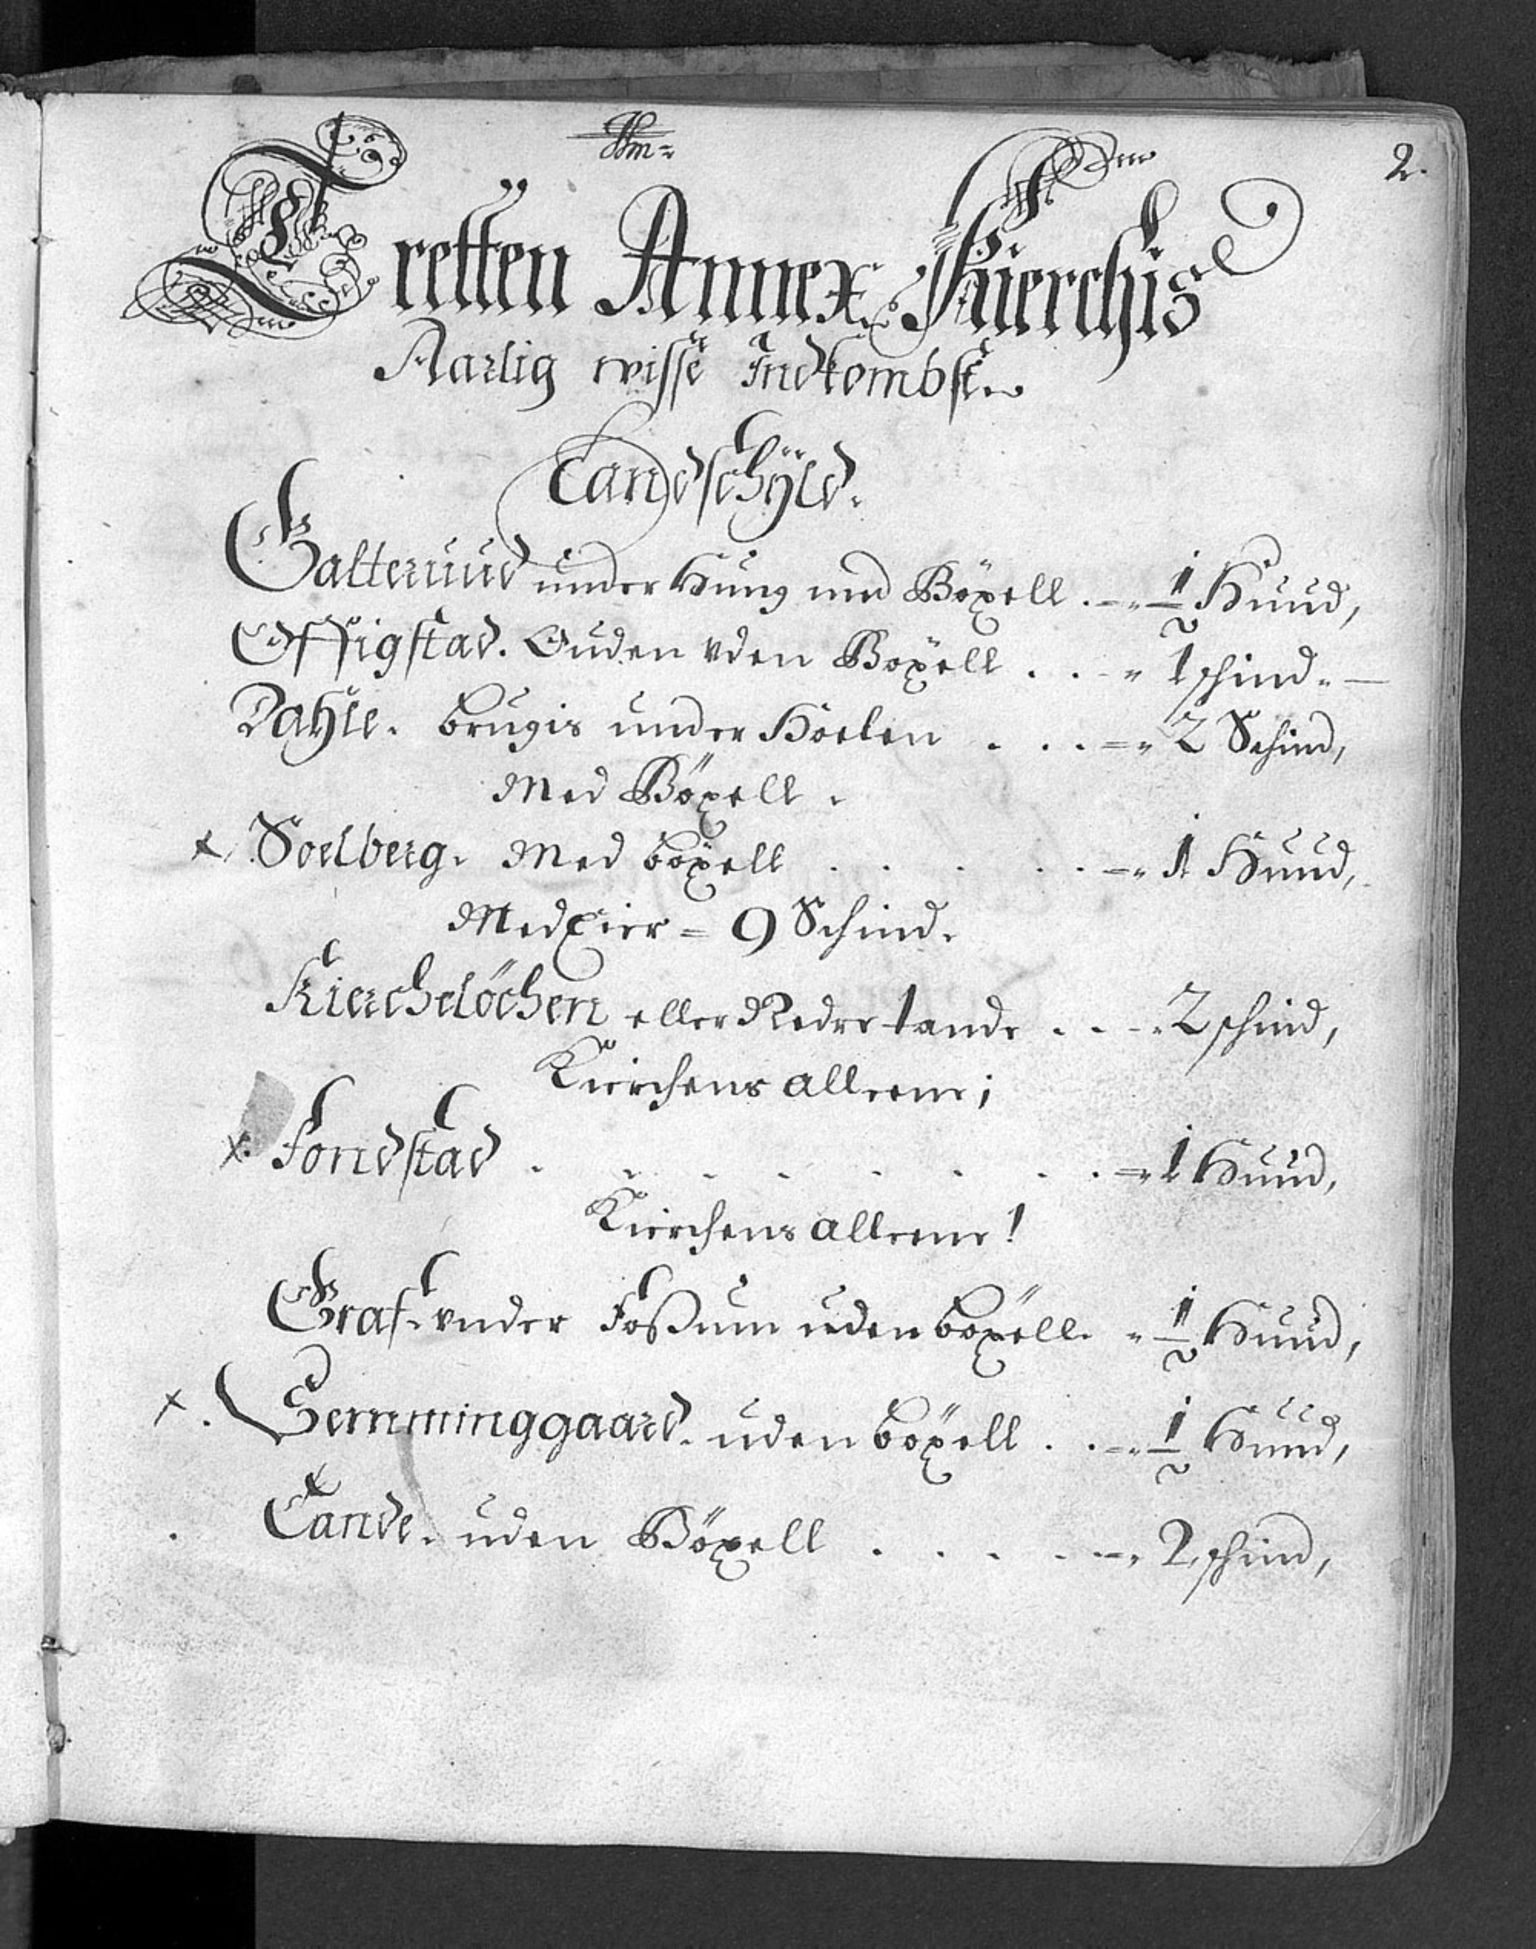 2.
Tretten Annex Kierchis
Aarlig wisse Indkombst
Landschÿld.
Galteruud under Hung med Böxell . 1/2 Huud,
Offigstad. Ouden vden Böxell . . . 1 schind.
Dahle. brugis under Hoelen . . . 2 Schind,
Med Böxell.
x Soelberg. Med böxell . . . . . 1 Huud,
Med Xier = 9 Schind.
Kierchelöchen eller Reder Lande . . . 2 schind,
Kierchens alleene;
x. Fondstad . . . . . . . . 1 Huud,
Kierchens alleene!
Graf. vnder Fossum uden böxell. 1/2 Huud,
x . Semminggaard. uden böxell . . 1/2 Huud,
. Lande. uden Böxell . . . . . 2 schind,